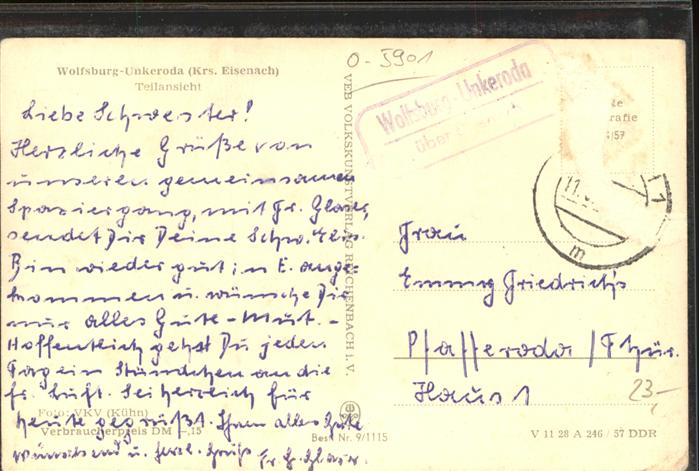 O-5901
Wolfsburg-Unkeroda (Krs. Eisenach)
Teilansicht
Liebe Schwester!
Herzliche Grüße von
unseren gemeinsamen
Spaziergang, mit Fr. Glaser,
sendet Dir Deine Schw.
Bin wieder gut in E. ange-
kommen u. wünsche Dir
nur alles Gute - Mut. -
Hoffentlich gehst Du jeden
Tag ein Stündchen an die
fr. Luft. Sei herzlich für
heute gegrüßt. Ihnen alles Gute
wünschend u. herzl. Grüße Fr. G. Glaser.
Foto: VKV (Kühn)
Verbraucherpreis DM -,15
VEB VOLKSKUNSTVERLAG REICHENBACH i. V.
Best Nr. 9/1115
Wolfsburg-Unkeroda
über
11
m
Frau
Emmy Friedrichs
Pfafferoda / Thür.
Haus 1
23,-
V 11 28 A 246 / 57 DDR